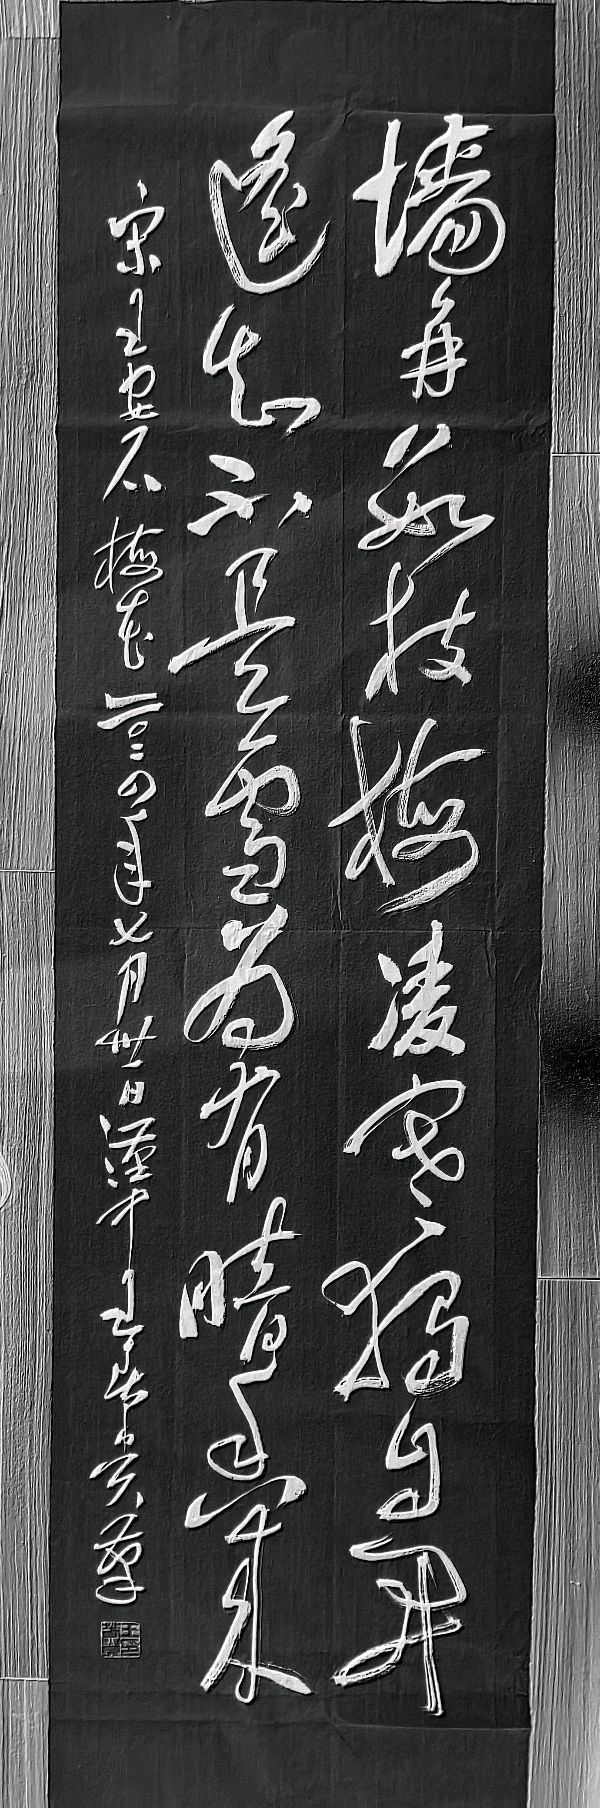 墙角数枝梅凌寒独自开
遥知不是雪为有暗香来
宋王安石梅花二〇二四年七月卅一日漢中王